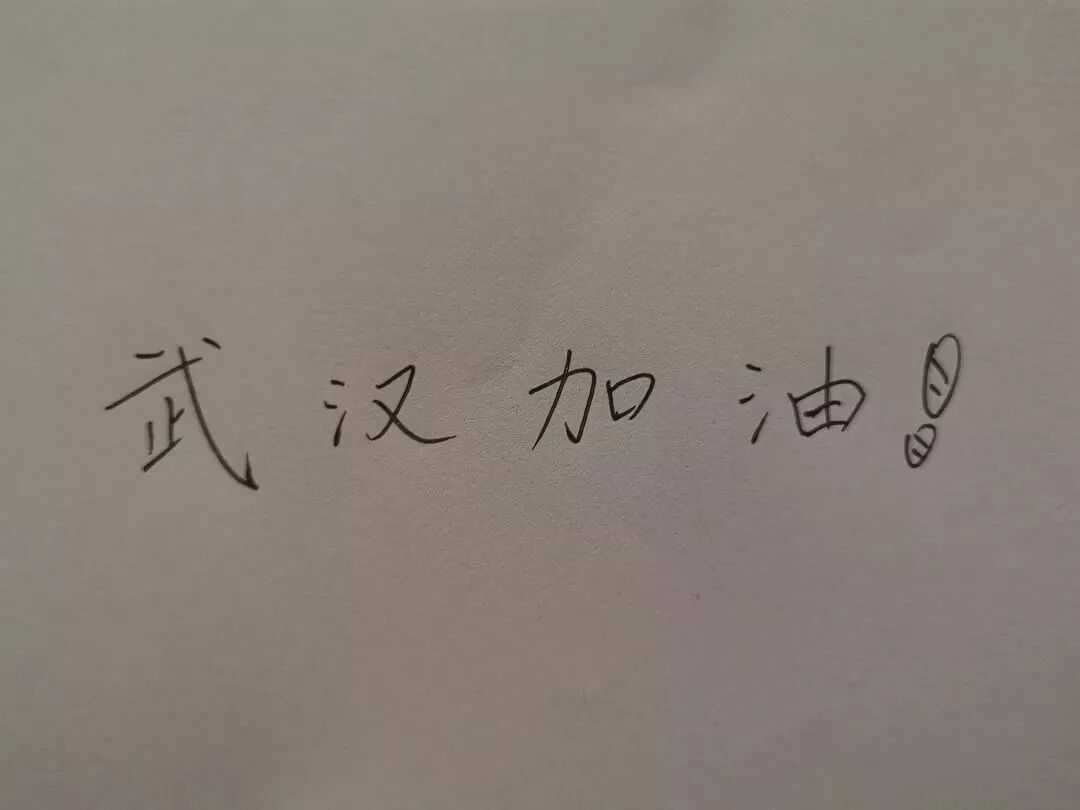 武汉加油！